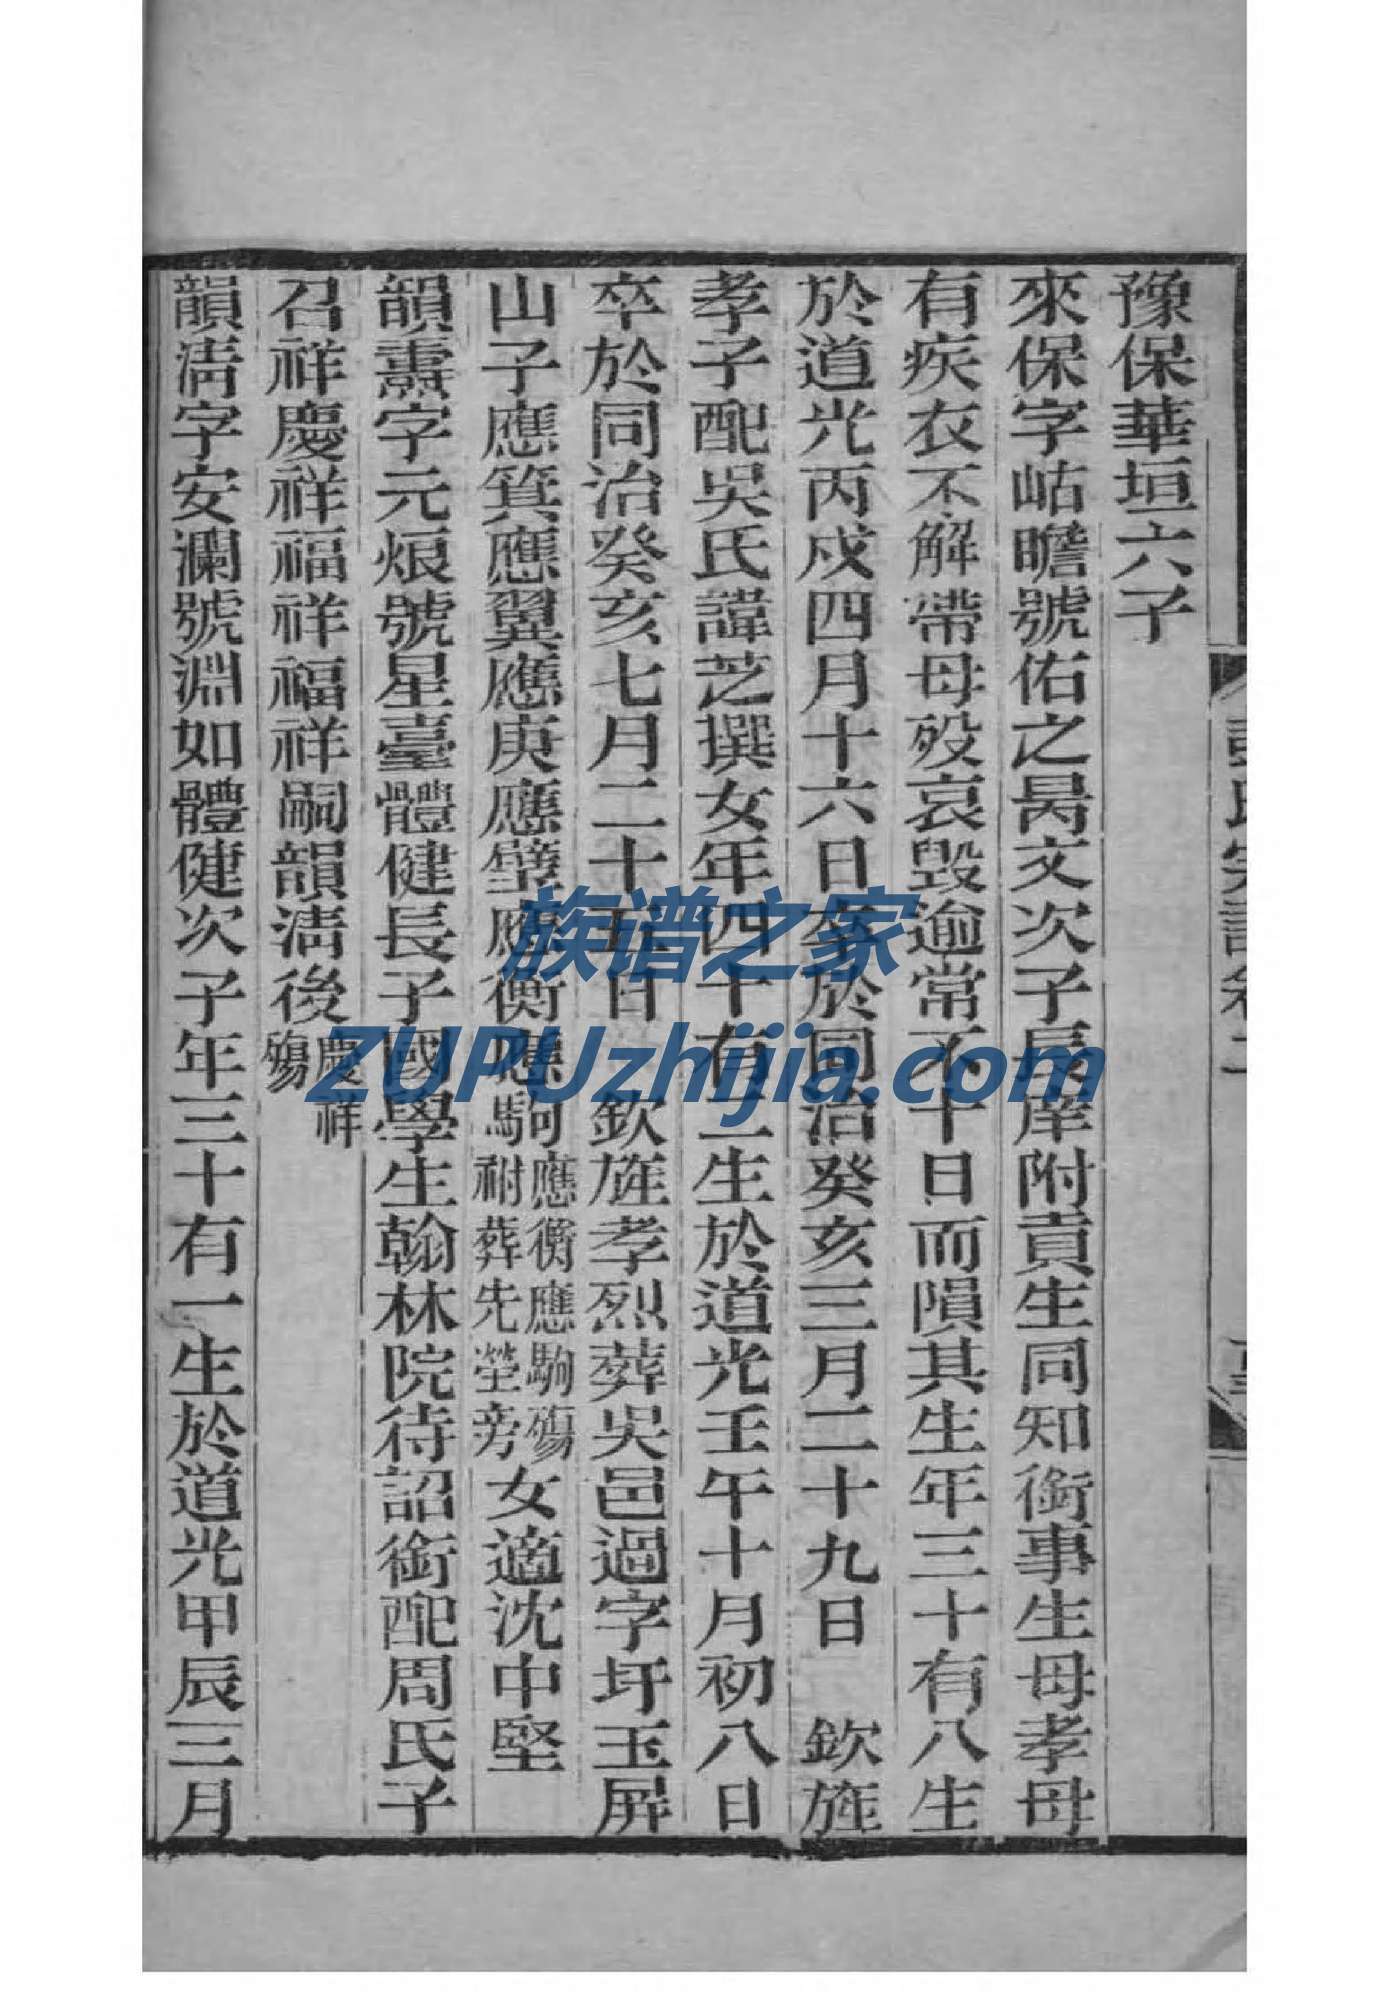 豫保華垣六子
來保字岵瞻號佑之昺文次子長庠附貢生同知銜事生母孝母
有疾衣不解帶母歿哀毀逾常不十日而隕其生年三十有八生
於道光丙戌四月十六日卒於同治癸亥三月二十九日 欽旌
孝子配吳氏諱芝撰女年四十有二生於道光壬午十月初八日
卒於同治癸亥七月二十五日 欽旌孝烈葬吳邑過字圩玉屏
山子應箕應翼應庚應壁應衡應駒應衡應駒殤祔葬先塋旁女適沈中堅
韻燾字元烺號星臺體健長子國學生翰林院待詔銜配周氏子
召祥慶祥福祥福祥嗣韻清後慶祥殤
韻清字安瀾號淵如體健次子年三十有一生於道光甲辰三月
彭氏宗譜卷二
族谱之家
ZUPUzhijia.com